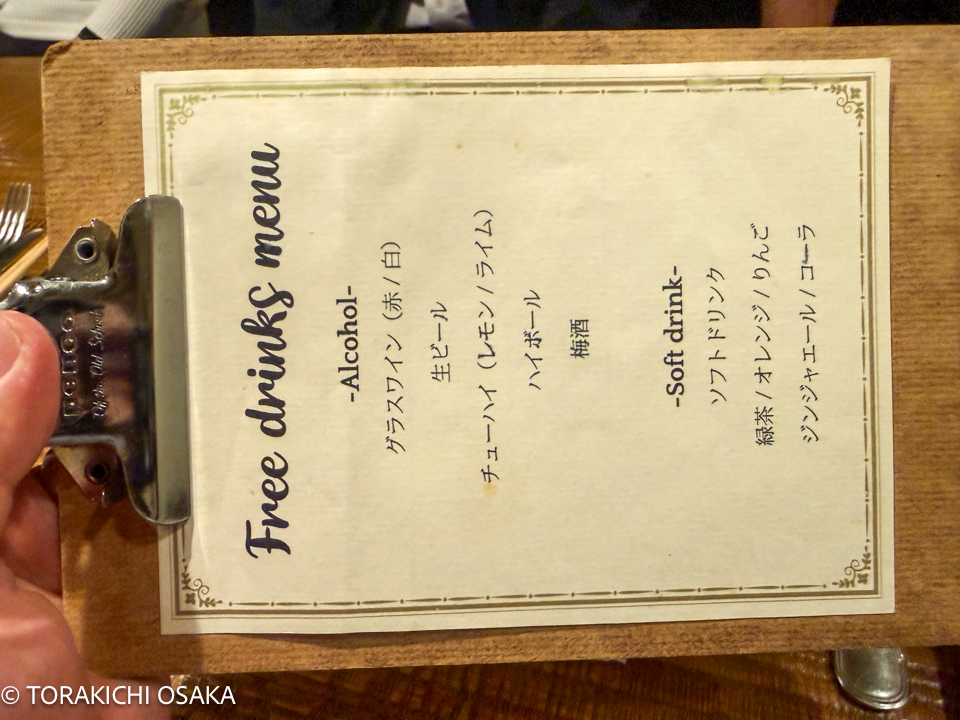 Free drinks menu
-Alcohol-
グラスワイン（赤 / 白）
生ビール
チューハイ（レモン / ライム）
ハイボール
梅酒
-Soft drink-
ソフトドリンク
緑茶 / オレンジ / りんご
ジンジャエール / コーラ
© TORAKICHI OSAKA